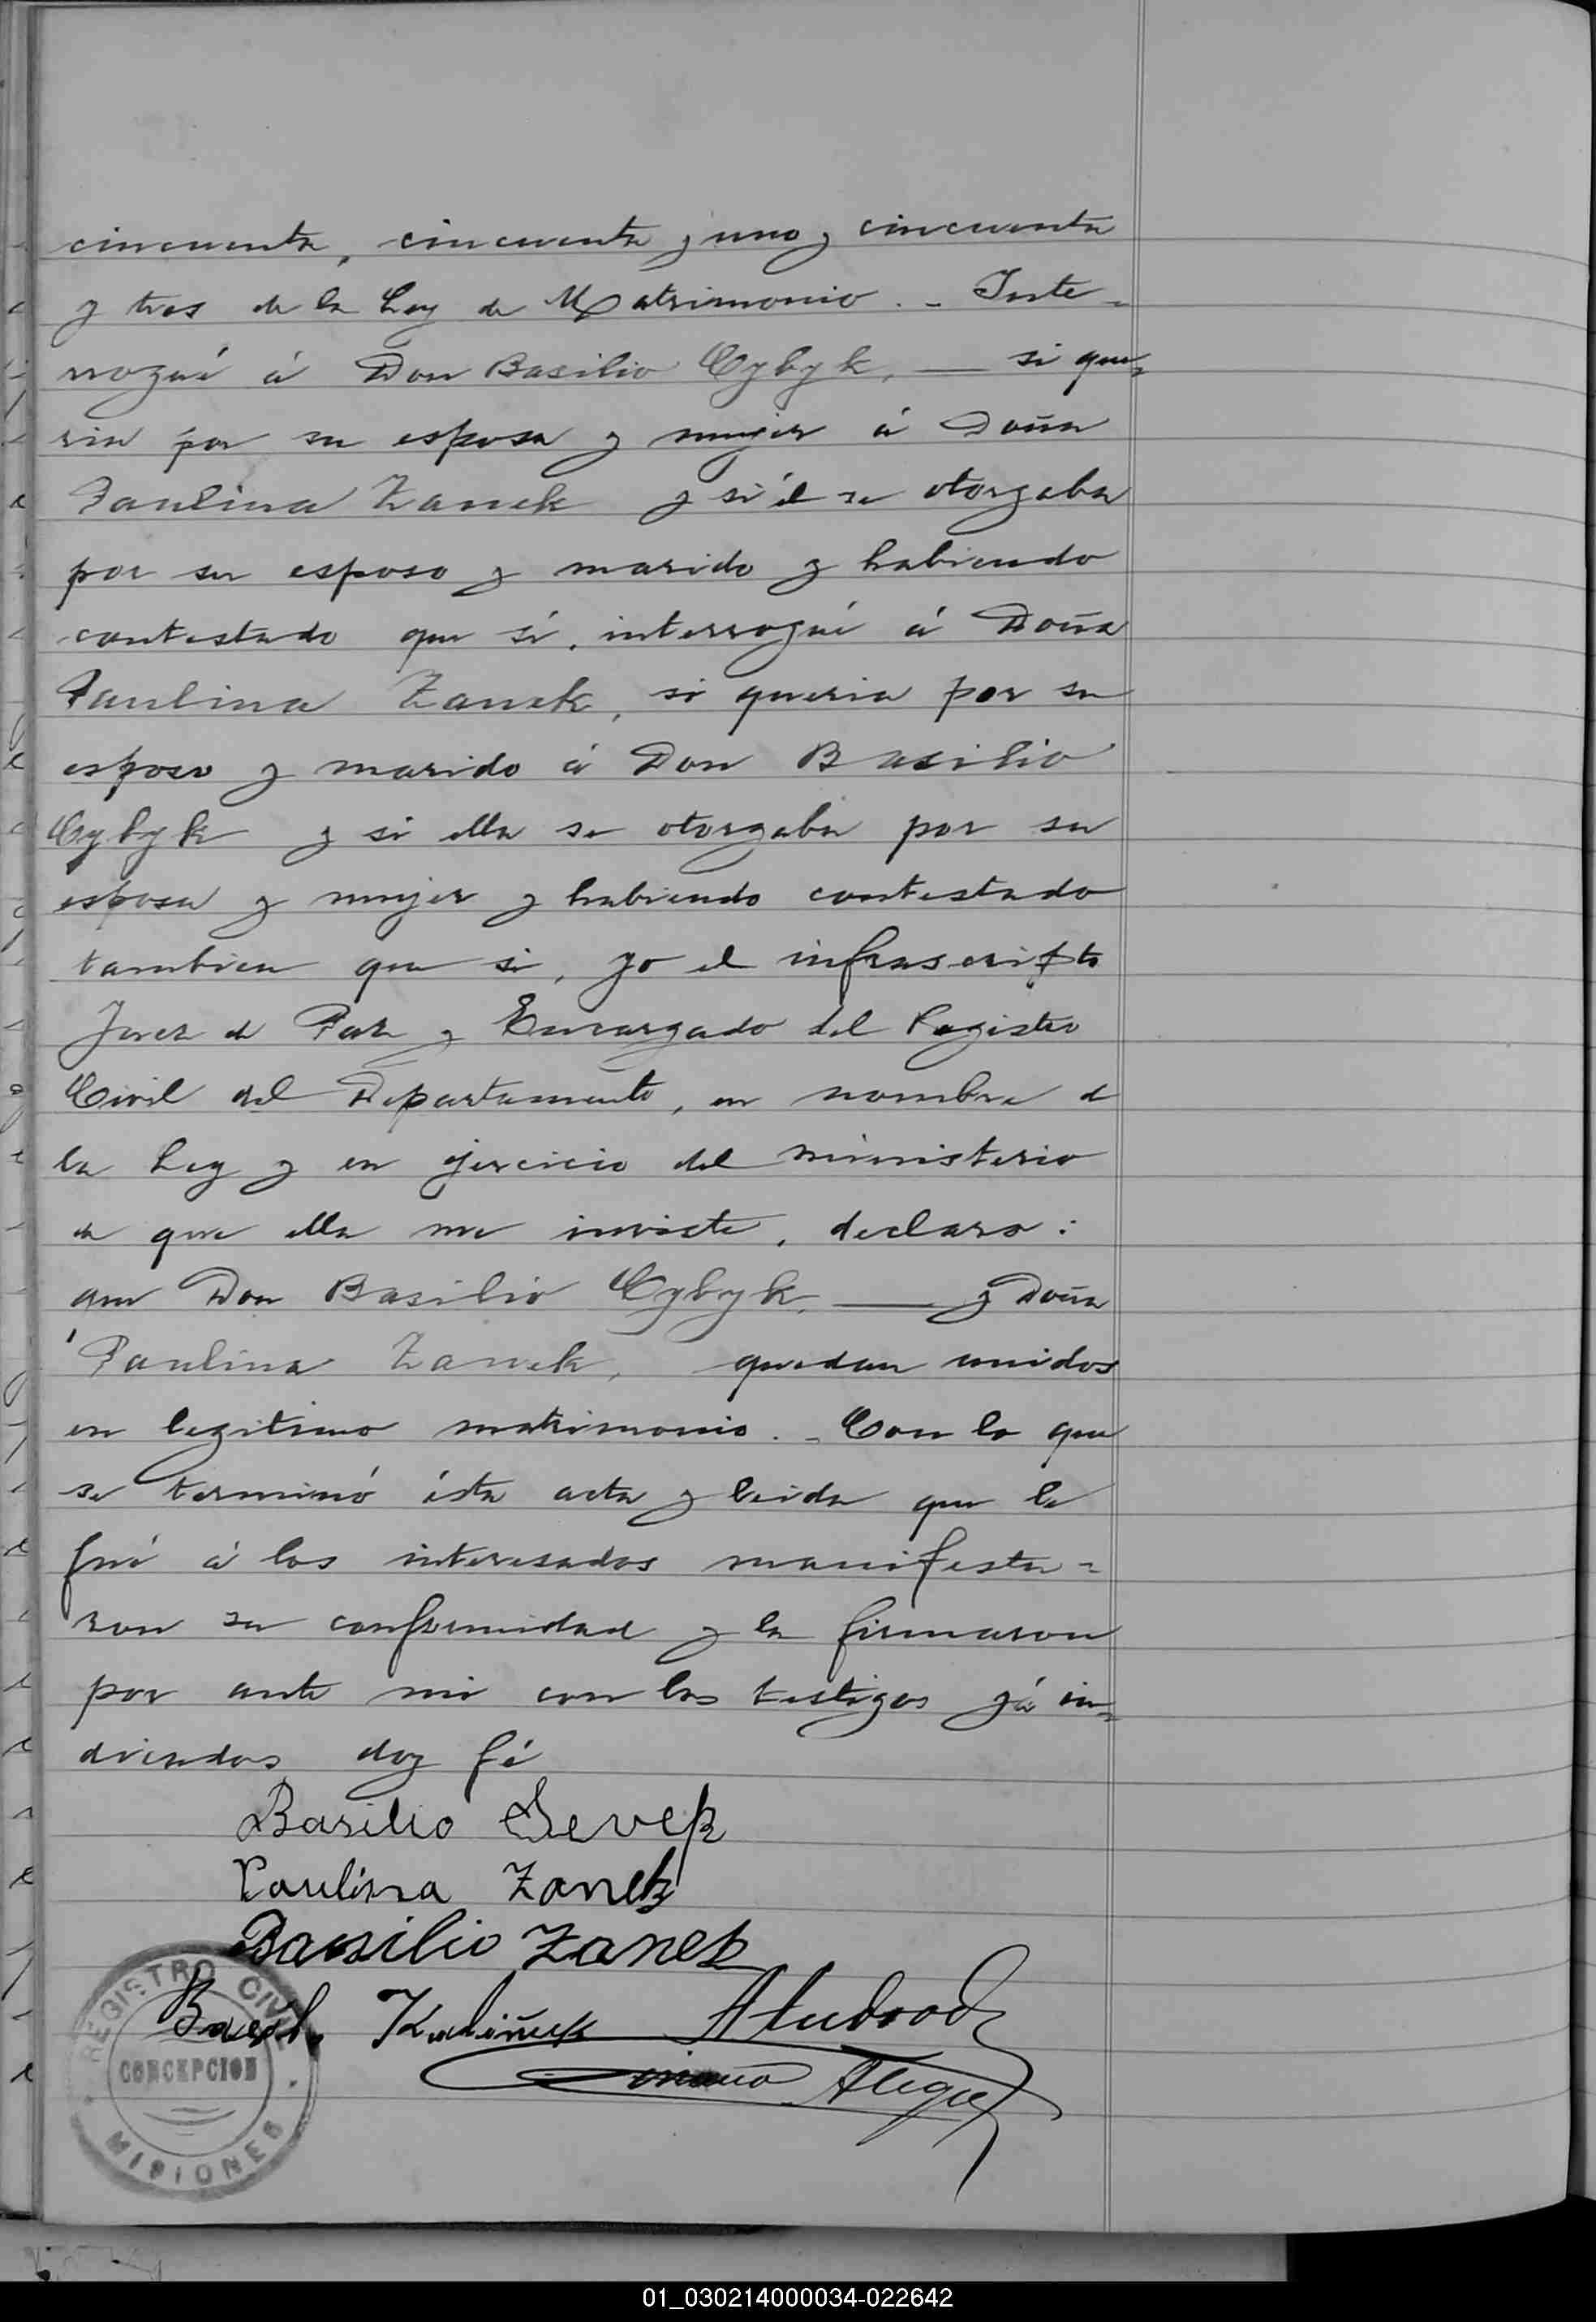 cincuenta, cincuenta y uno y cincuenta
y tres de la Ley de Matrimonio. - Inte-
rrogué á Don Basilio Cybyk, — si que-
ria por su esposa y mujer á Doña
Paulina Zanek y si él se otorgaba
por su esposo y marido y habiendo
contestado que sí, interrogué á Doña
Paulina Zanek, si queria por su
esposo y marido á Don Basilio
Cybyk y si ella se otorgaba por su
esposa y mujer y habiendo contestado
tambien que si, yo el infrascripto
Juez de Paz y Encargado del Registro
Civil del Departamento, en nombre de
la Ley y en ejercicio del ministerio
de que ella me inviste, declaro:
que Don Basilio Cybyk, — y Doña
Paulina Zanek, quedan unidos
en legitimo matrimonio. - Con lo que
se terminó ésta acta y leida que le
fué á los interesados manifesta=
ron su conformidad y la firmaron
por ante mi con los testigos yá in=
dicados doy fé
Basilio
Paulina Zanek
Basilio Zanek
REGISTRO CIVIL
CONCEPCION
MISIONES
01_030214000034-022642